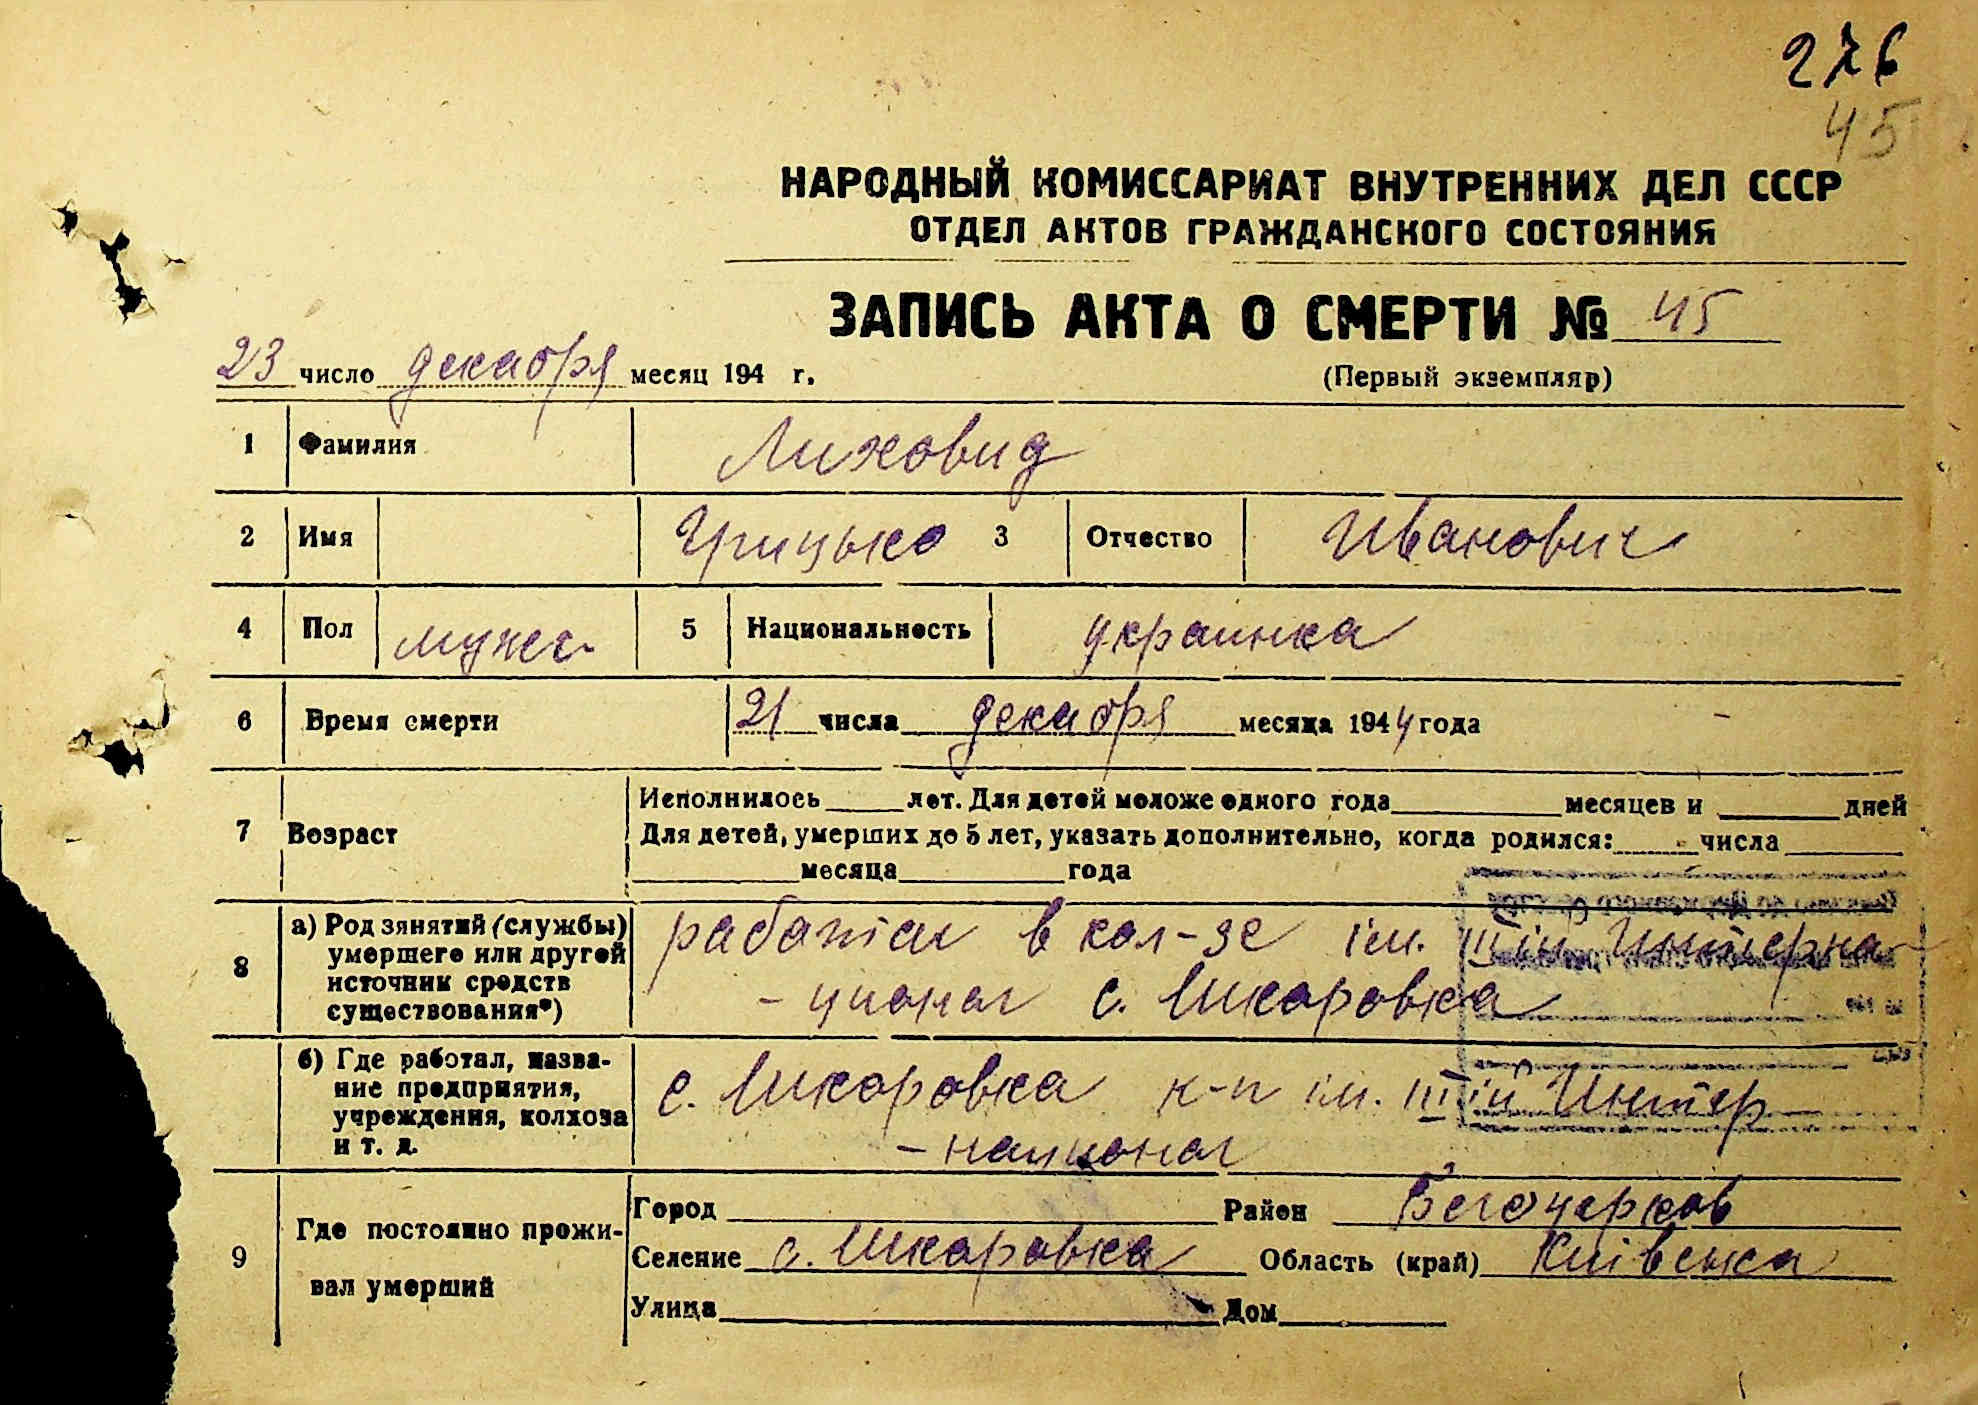 276
45
НАРОДНЫЙ КОМИССАРИАТ ВНУТРЕННИХ ДЕЛ СССР
ОТДЕЛ АКТОВ ГРАЖДАНСКОГО СОСТОЯНИЯ
ЗАПИСЬ АКТА О СМЕРТИ № 45
23 число декабря месяц 194 г.
(Первый экземпляр)
1 Фамилия Лиховид
2 Имя Грицько 3 Отчество Иванович
4 Пол мужс. 5 Национальность украинка
6 Время смерти 21 числа декабря месяца 1944 года
7 Возраст
Исполнилось лет. Для детей моложе одного года месяцев и дней
Для детей, умерших до 5 лет, указать дополнительно, когда родился: числа
месяца года
8 а) Род занятий (службы) умершего или другой источник средств существования*)
работал в кол-зе ім. ІІІ ій Интерна-
-ционал с. Шкаровка
б) Где работал, название предприятия, учреждения, колхоза и т. д.
с. Шкаровка к-п ім. ІІІ ій Интер
-национал
9 Где постоянно проживал умерший
Город Район Белоцерков
Селение с. Шкаровка Область (край) Київська
Улица Дом